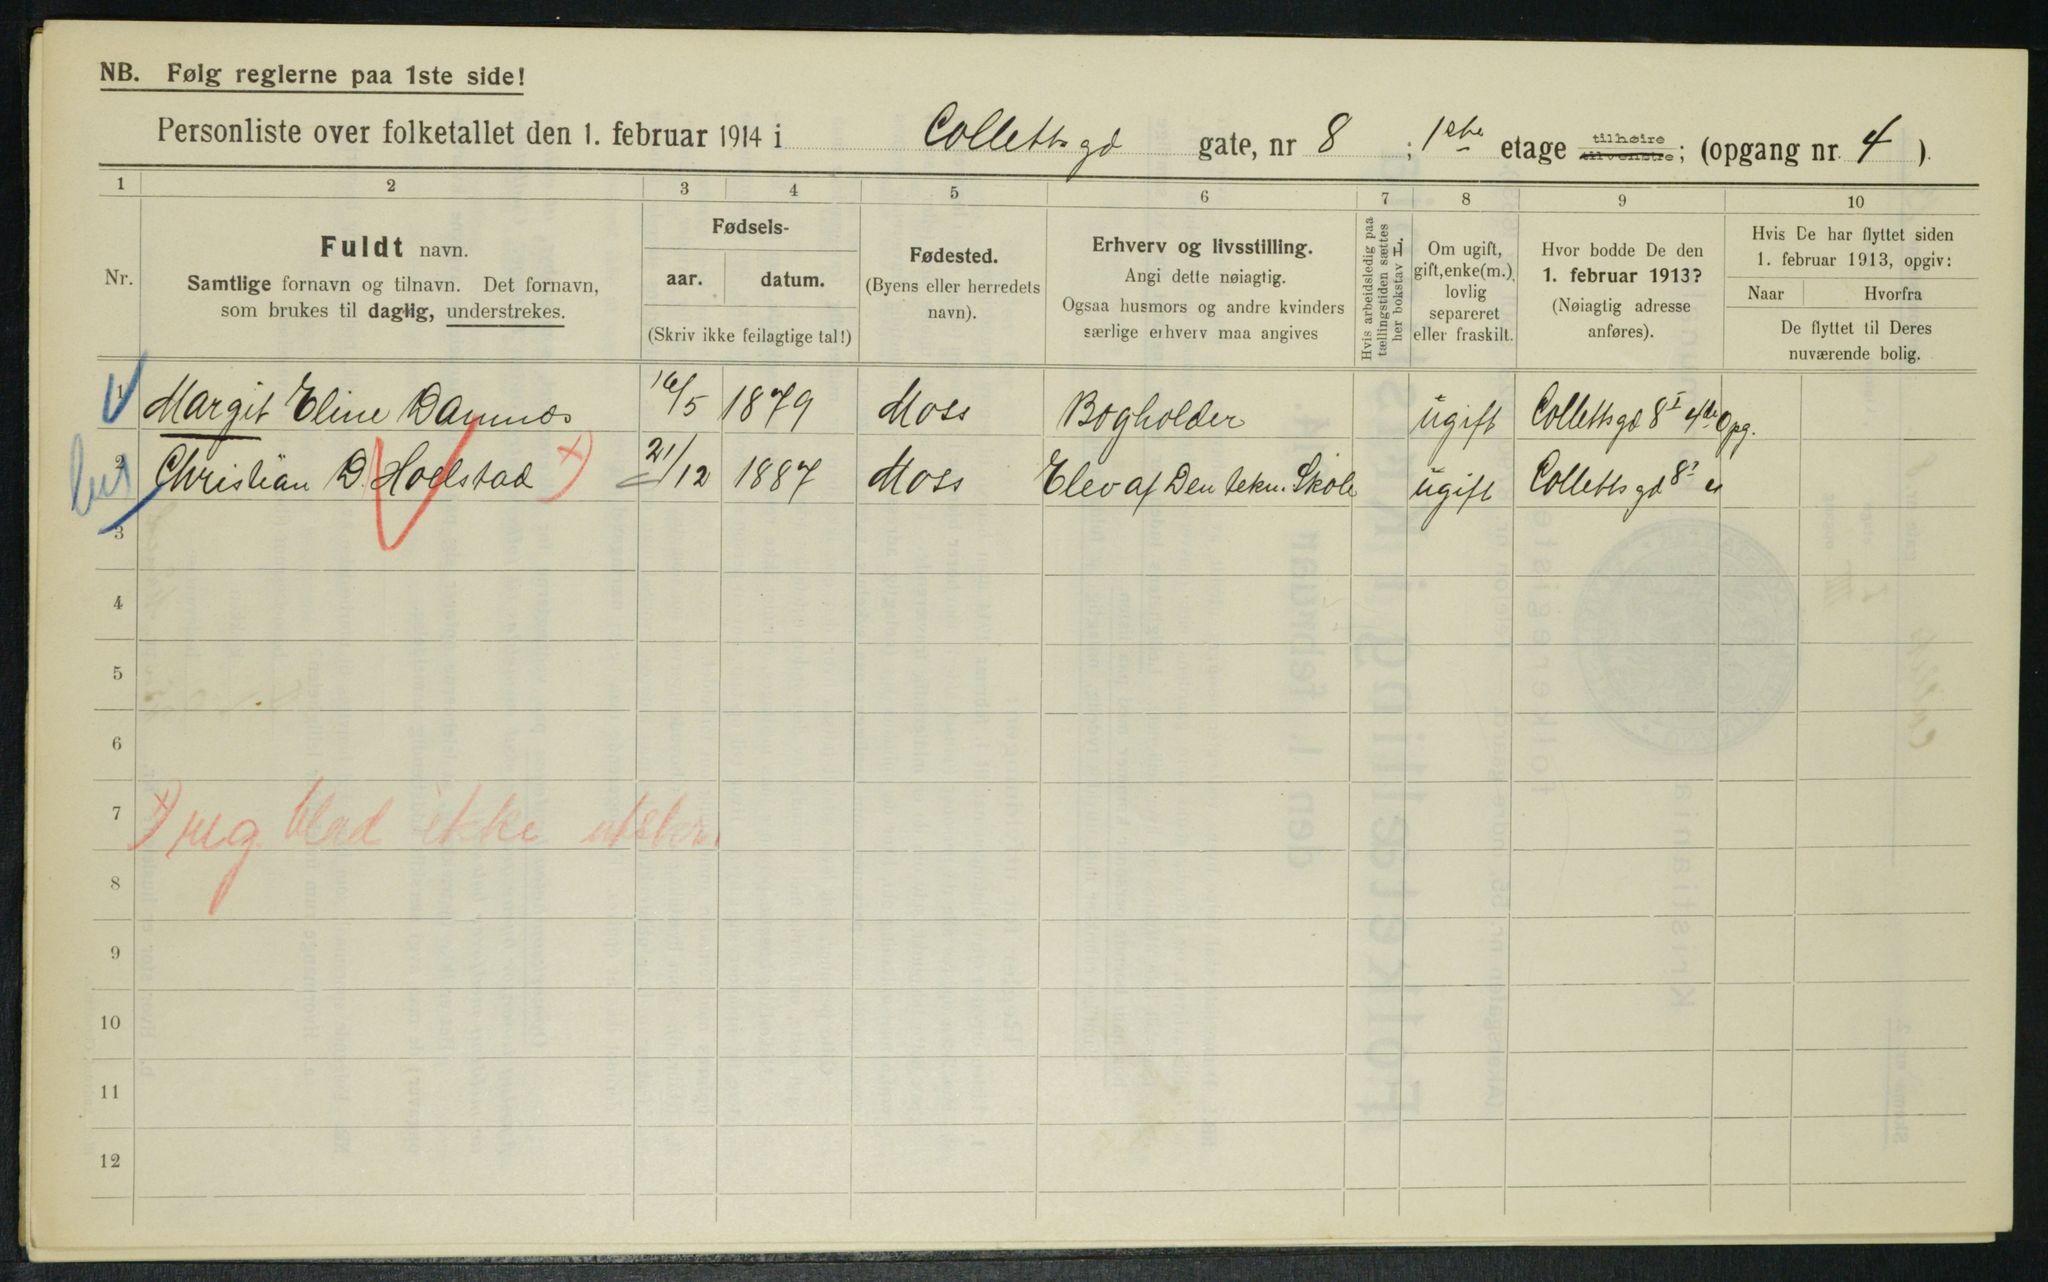 NB. Følg reglerne paa 1ste side!
Personliste over folketallet den 1. februar 1914 i Collettsgd gate, nr 8 ; 1ste etage tilhøire tilvenstre; (opgang nr. 4 ).
1 2 3 4 5 6 7 8 9 10
Nr.
Fuldt navn.
Samtlige fornavn og tilnavn. Det fornavn,
som brukes til daglig, understrekes.
Fødsels-
aar. datum.
(Skriv ikke feilagtige tal!)
Fødested.
(Byens eller herredets
navn).
Erhverv og livsstilling.
Angi dette nøiagtig.
Ogsaa husmors og andre kvinders
særlige erhverv maa angives
Hvis arbeidsledig paa
tællingstiden sættes
her bokstav L.
Om ugift,
gift, enke(m.),
lovlig
separeret
eller fraskilt.
Hvor bodde De den
1. februar 1913?
(Nøiagtig adresse
anføres).
Hvis De har flyttet siden
1. februar 1913, opgiv:
Naar Hvorfra
De flyttet til Deres
nuværende bolig.
1 Margit Eline 16/5 1879 Moss Bogholder ugift Collettsgd 8 I 4de Opg.
2 Christian D. Hoelstad x) 21/12 1887 Moss Elev af Den tekn. Skole ugift Collettsgd 8
3
4
5
6
7
x) reg. blad ikke
8
9
10
11
12